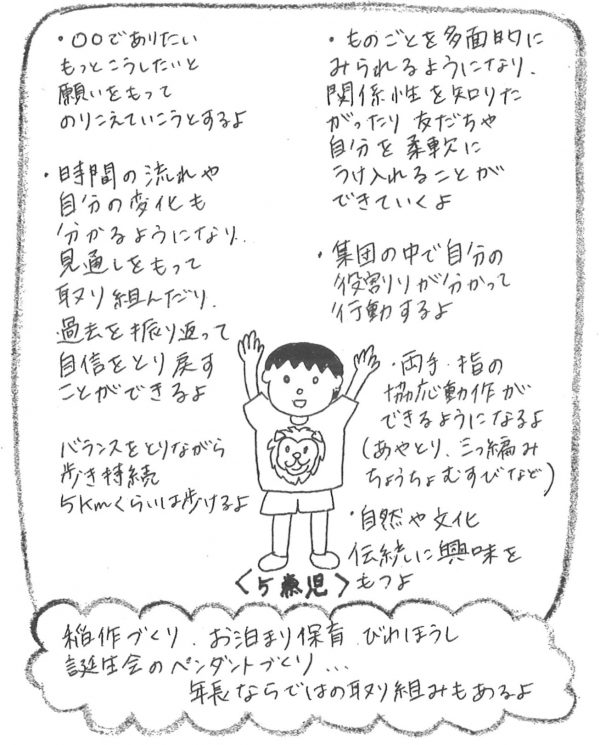 ・〇〇でありたい
もっとこうしたいと
願いをもって
のりこえていこうとするよ
・時間の流れや
自分の変化も
分かるようになり、
見通しをもって
取り組んだり、
過去を振り返って
自信をとり戻す
ことができるよ
バランスをとりながら
歩き持続
5Kmくらいは歩けるよ
・ものごとを多面的に
みられるようになり、
関係性を知りた
がったり 友だちや
自分を柔軟に
うけ入れることが
できていくよ
・集団の中で自分の
役割りが分かって
行動するよ
・両手・指の
協応動作が
できるようになるよ
(あやとり、三つ編み
ちょうちょむすびなど)
・自然や文化
伝統に興味を
もつよ
〈5歳児〉
稲作づくり、お泊まり保育、びわほうし
誕生会のペンダントづくり...
年長ならではの取り組みもあるよ